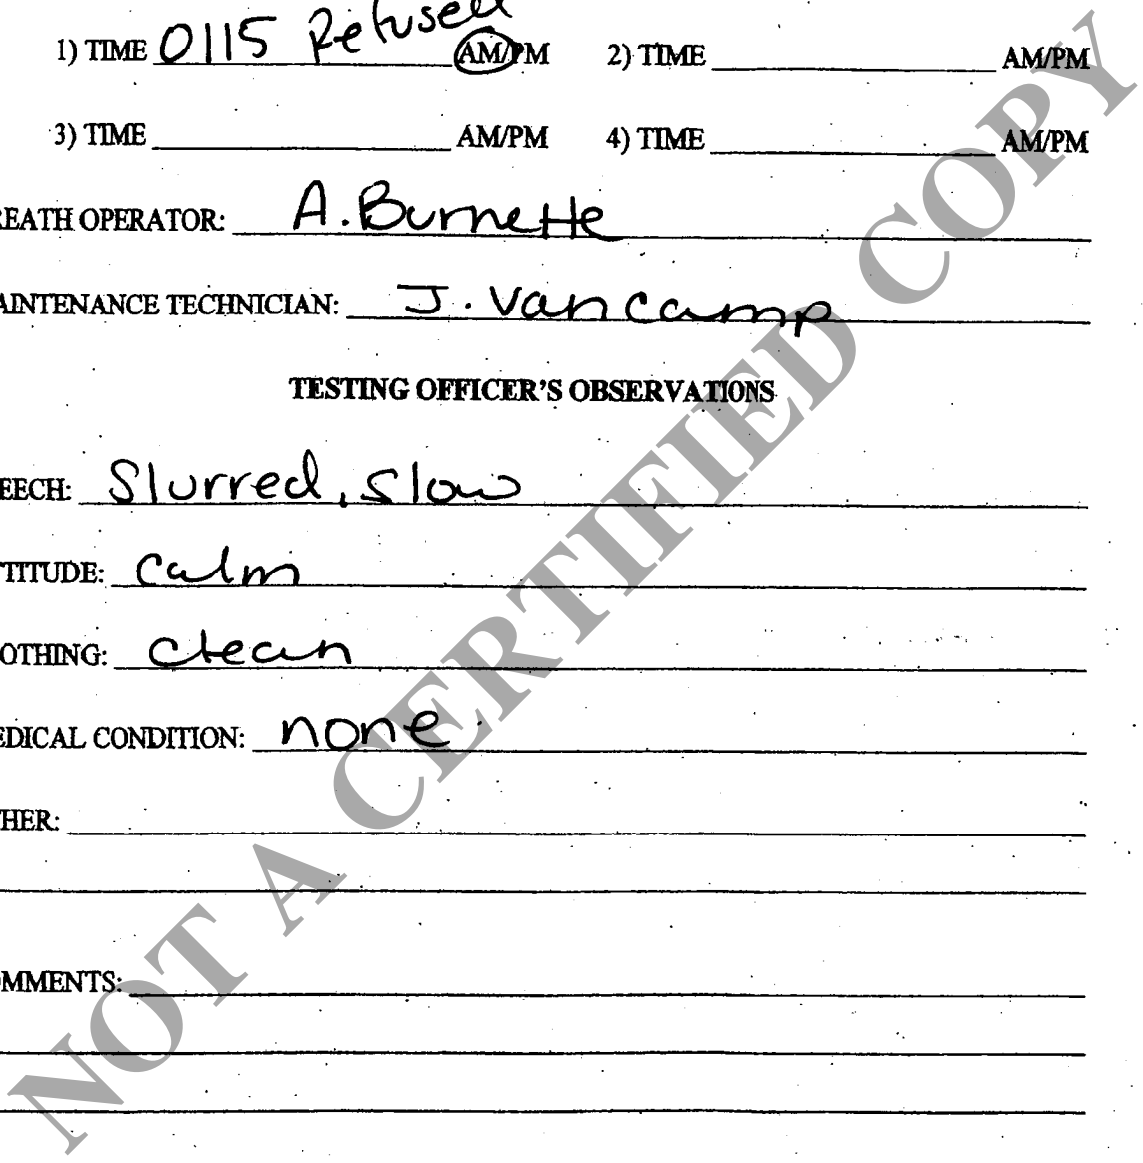 1) TIME 0115 Refused AM/PM 2) TIME AM/PM
3) TIME AM/PM 4) TIME AM/PM
REATH OPERATOR: A. Burnette
AINTENANCE TECHNICIAN: J. Vancamp
TESTING OFFICER'S OBSERVATIONS
EECH: Slurred, slow
TITUDE: calm
OTHING: clean
EDICAL CONDITION: none
HER:
OMMENTS:
NOT A CERTIFIED COPY